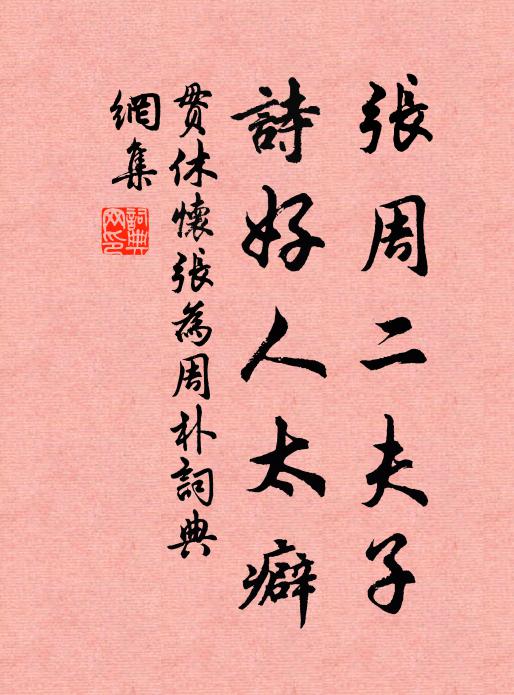 張周二夫子
詩好人太癖
貫休懷張為周朴詞典
網集
詞典網印